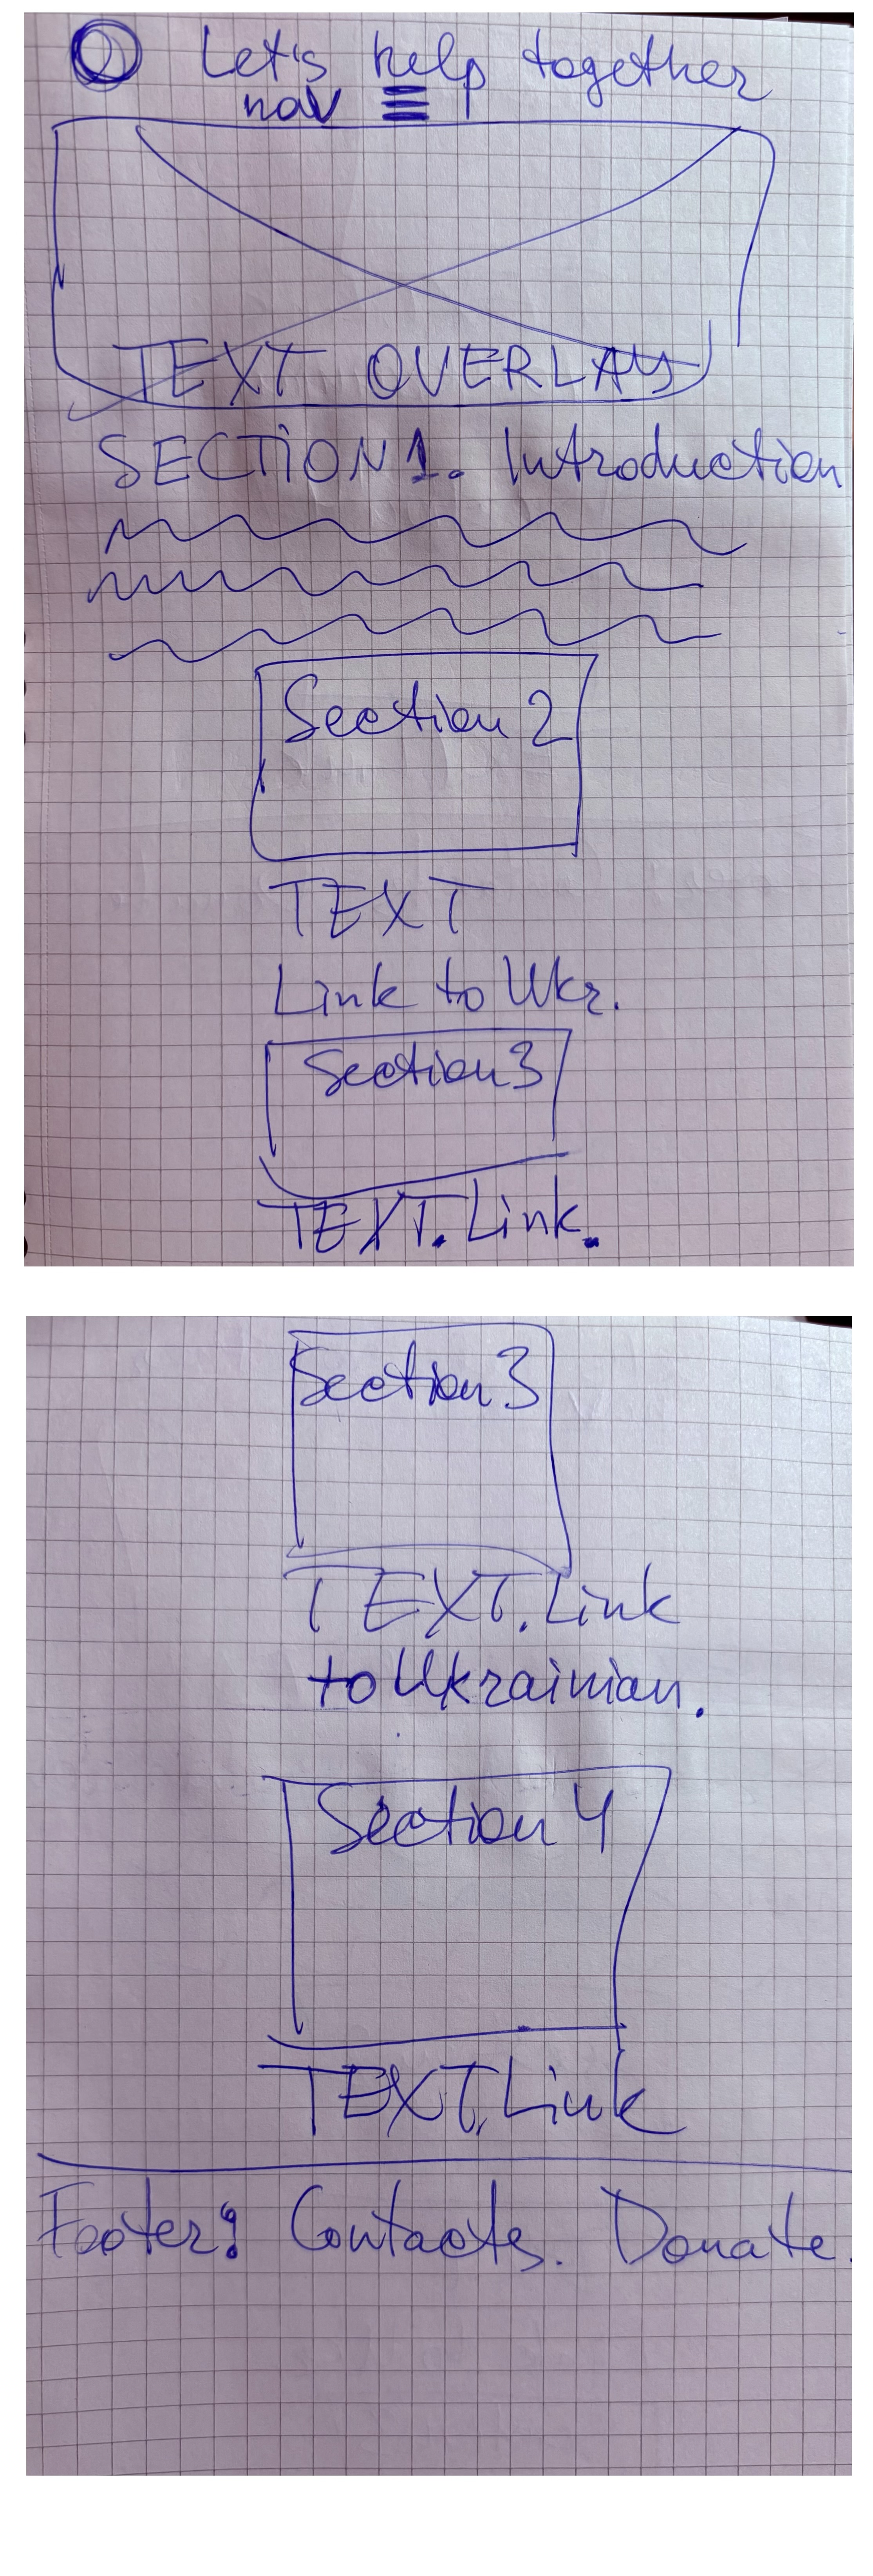 Let's help together
nav
TEXT OVERLAY
SECTION 1. Introduction
Section 2
TEXT
Link to Ukr.
Section 3
TEXT. Link.
Section 3
TEXT. Link
to Ukrainian.
Section 4
TEXT. Link
Footer: Contacts. Donate.